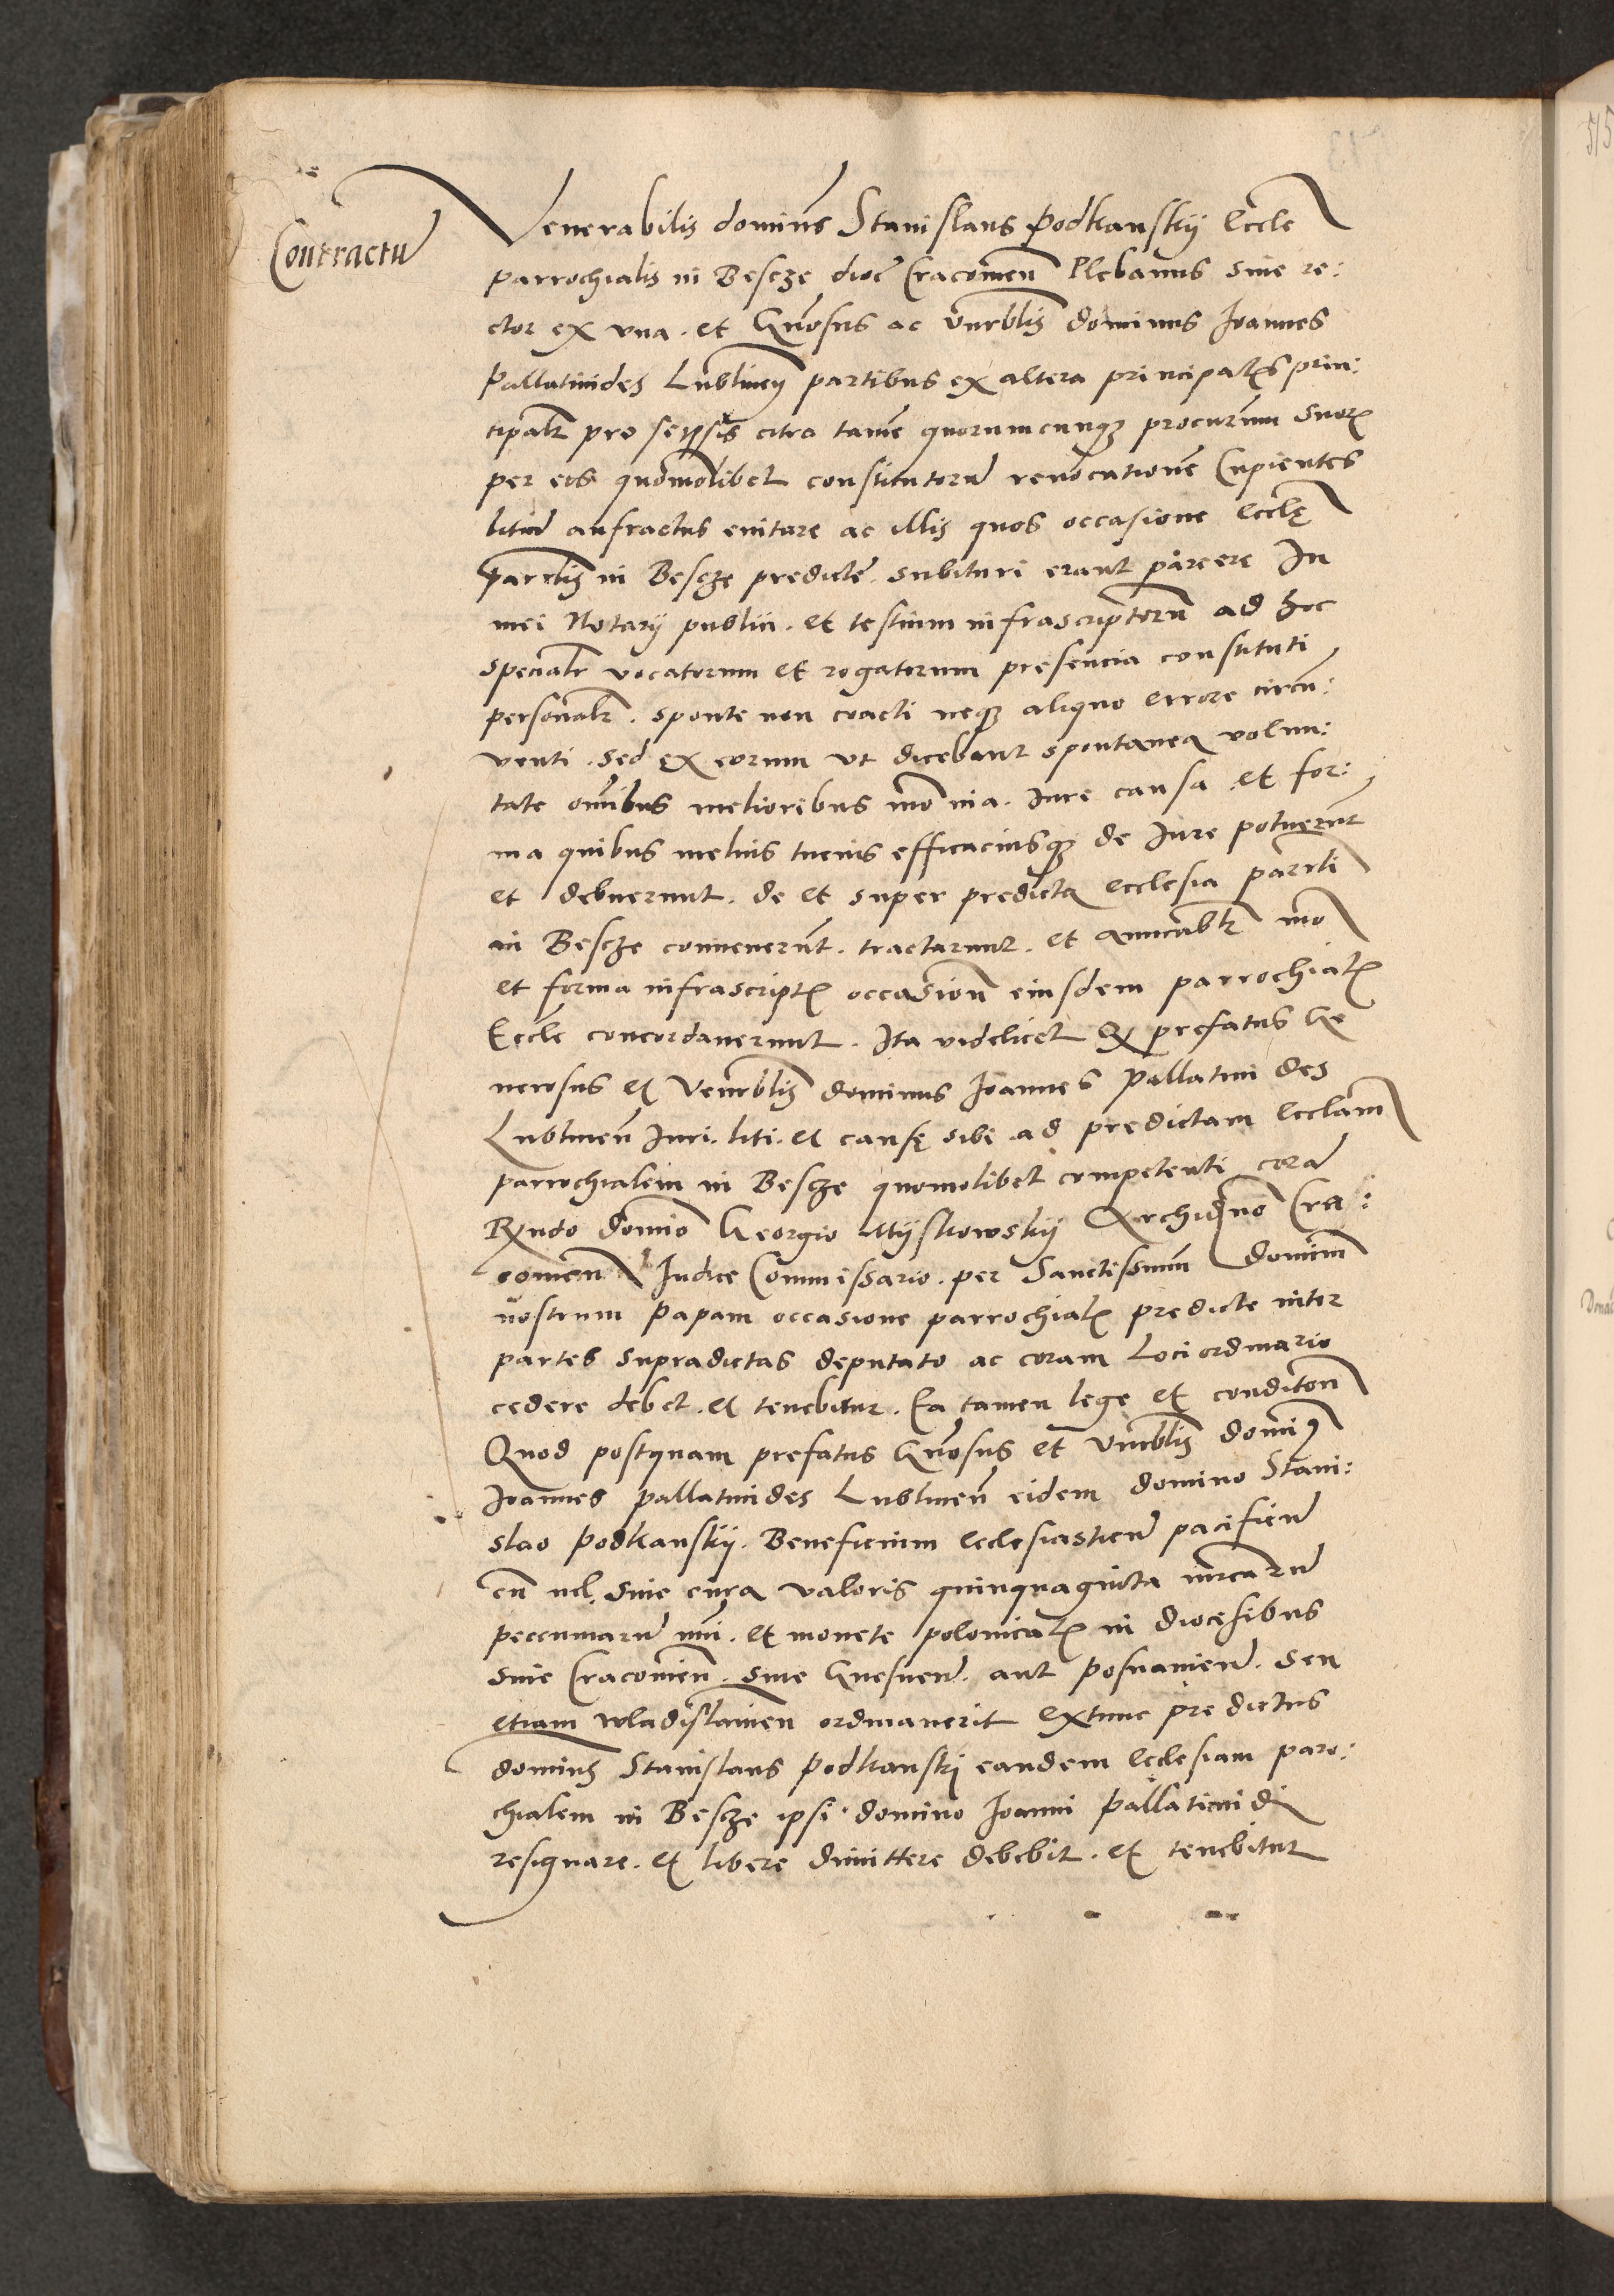 Contractu
Venerabilis dominus Stanislaus Podkanskij Eccle
parrochialis in Bescze dioc Cracovien Plebanus sive re:
ctor ex una. et Gnosus ac Venrblis dominus Joannes
Pallatinides Lublinen partibus ex altera principales prin:
cipalr pro seipsis citra tamen quorumcunqz procurum suorum
per eos quomolibet constitutorum revocationem Cupientes
litium anfractus evitare ac illis quos occasione Ecclę
parrlis in Bescze predicte. subituri erant parcere In
mei Notarij publici. et testium infrascriptorum ad hoc
specialr vocatorum et rogatorum presencia constituti
personalr. sponte non coacti neqz aliquo errore circu:
venti. sed ex eorum ut dicebant spontanea volun:
tate omibus melioribus mo via. Jure causa et for:
ma quibus melius tucius efficaciusqz de Jure potuerunt
et debuerunt. de et super predicta ecclesia parrli
in Bescze convenerunt. tractarunt. et amicablr mo
et forma infrascript occasion eiusdem parrochialis
Eccle concordaverunt. Ita videlicet Q prefatus Ge
nerosus et Venrblis dominus Joannes Pallatini des
Lublinen Juri. liti. et causę sibi ad predictam Ecclam
parrochialem in Bescze quomolibet competenti cora
Rndo domino Georgio Myskowskij Archidno Cra:
covien Judice Commissario. per Sanctissimum dominum
nostrum Papam occasione parrochialis predicte inter
partes supradictas deputato ac coram Loci ordinario
cedere debet. et tenebitur. Ea tamen lege et condition
Quod postquam prefatus Gnosus et Vnrblis domin9
Joannes Pallatinides Lublinen eidem domino Stani:
slao Podkanskij. Beneficium Ecclesiasticum pacificum
cum vel. sine cura valoris quinquaginta mrcarum
peccuniarum nui. et monete polonicalis in diocesibus
sive Cracovien. sive Gnesnen. aut Posnanien. seu
etiam wladislavien ordinaverit Extunc predictus
dominus Stanislaus Podkanskj eandem Ecclesiam paro:
chialem in Bescze ipsi domino Joanni Pallatinidi
resignare. et libere dimittere debebit. et tenebitur
515